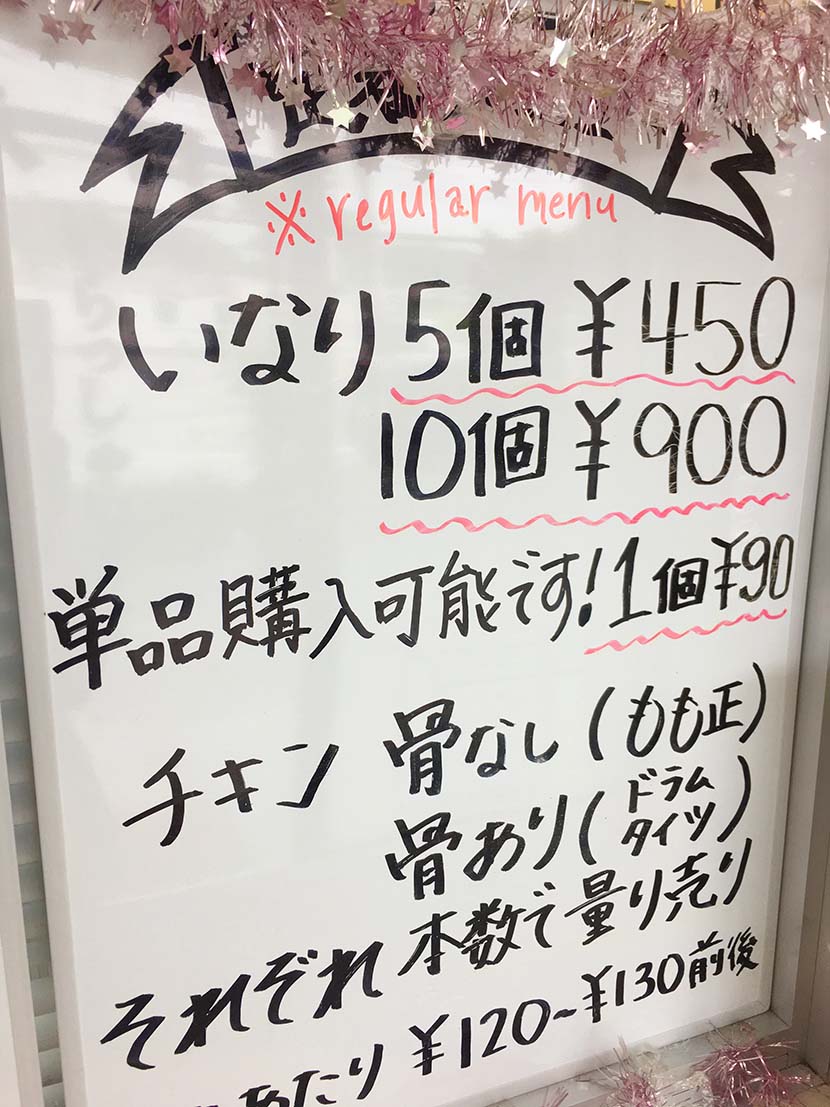 ※ regular menu
いなり 5個 ¥450
10個 ¥900
単品購入可能です！1個¥90
チキン 骨なし（もも正）
骨あり（ドラム
タイツ）
それぞれ 本数で量り売り
あたり ¥120~¥130前後